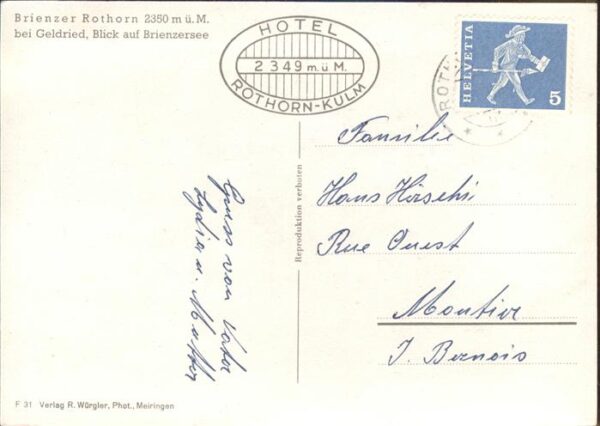 Brienzer Rothorn 2350 m ü. M.
bei Geldried, Blick auf Brienzersee
HOTEL
2349 m. ü. M.
ROTHORN-KULM
HELVETIA
5
ROTH
Familie
Hans Hirschi
Rue Ouest
Moutier
J. Bernois
Reproduktion verboten
Gruss von Vater
Lydia u. Mutter
F 31 Verlag R. Würgler, Phot., Meiringen